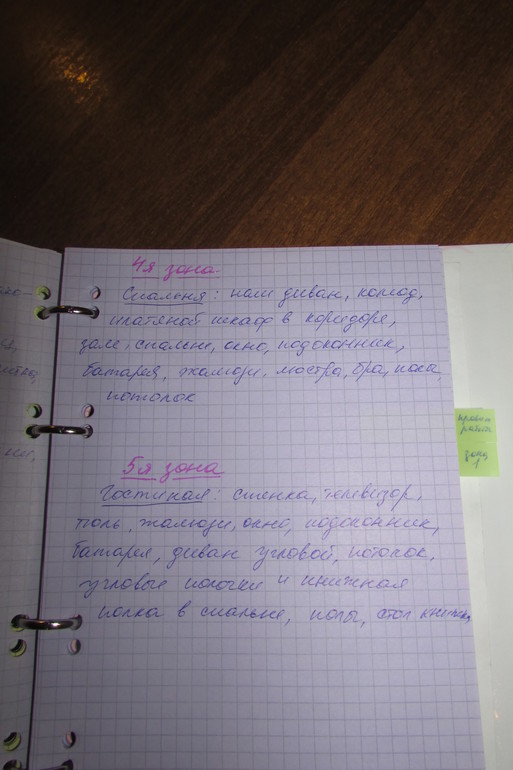 4я зона.
Спальня: наш диван, комод,
платяной шкаф в коридоре,
зале, спальне, окно, подоконник,
батарея, жалюзи, люстра, бра, полы,
потолок
5я зона
Гостиная: стенка, телевизор,
тюль, жалюзи, окно, подоконник,
батарея, диван угловой, потолок,
угловые полочки и книжная
полка в спальне, полы, стол книжка
зона
1